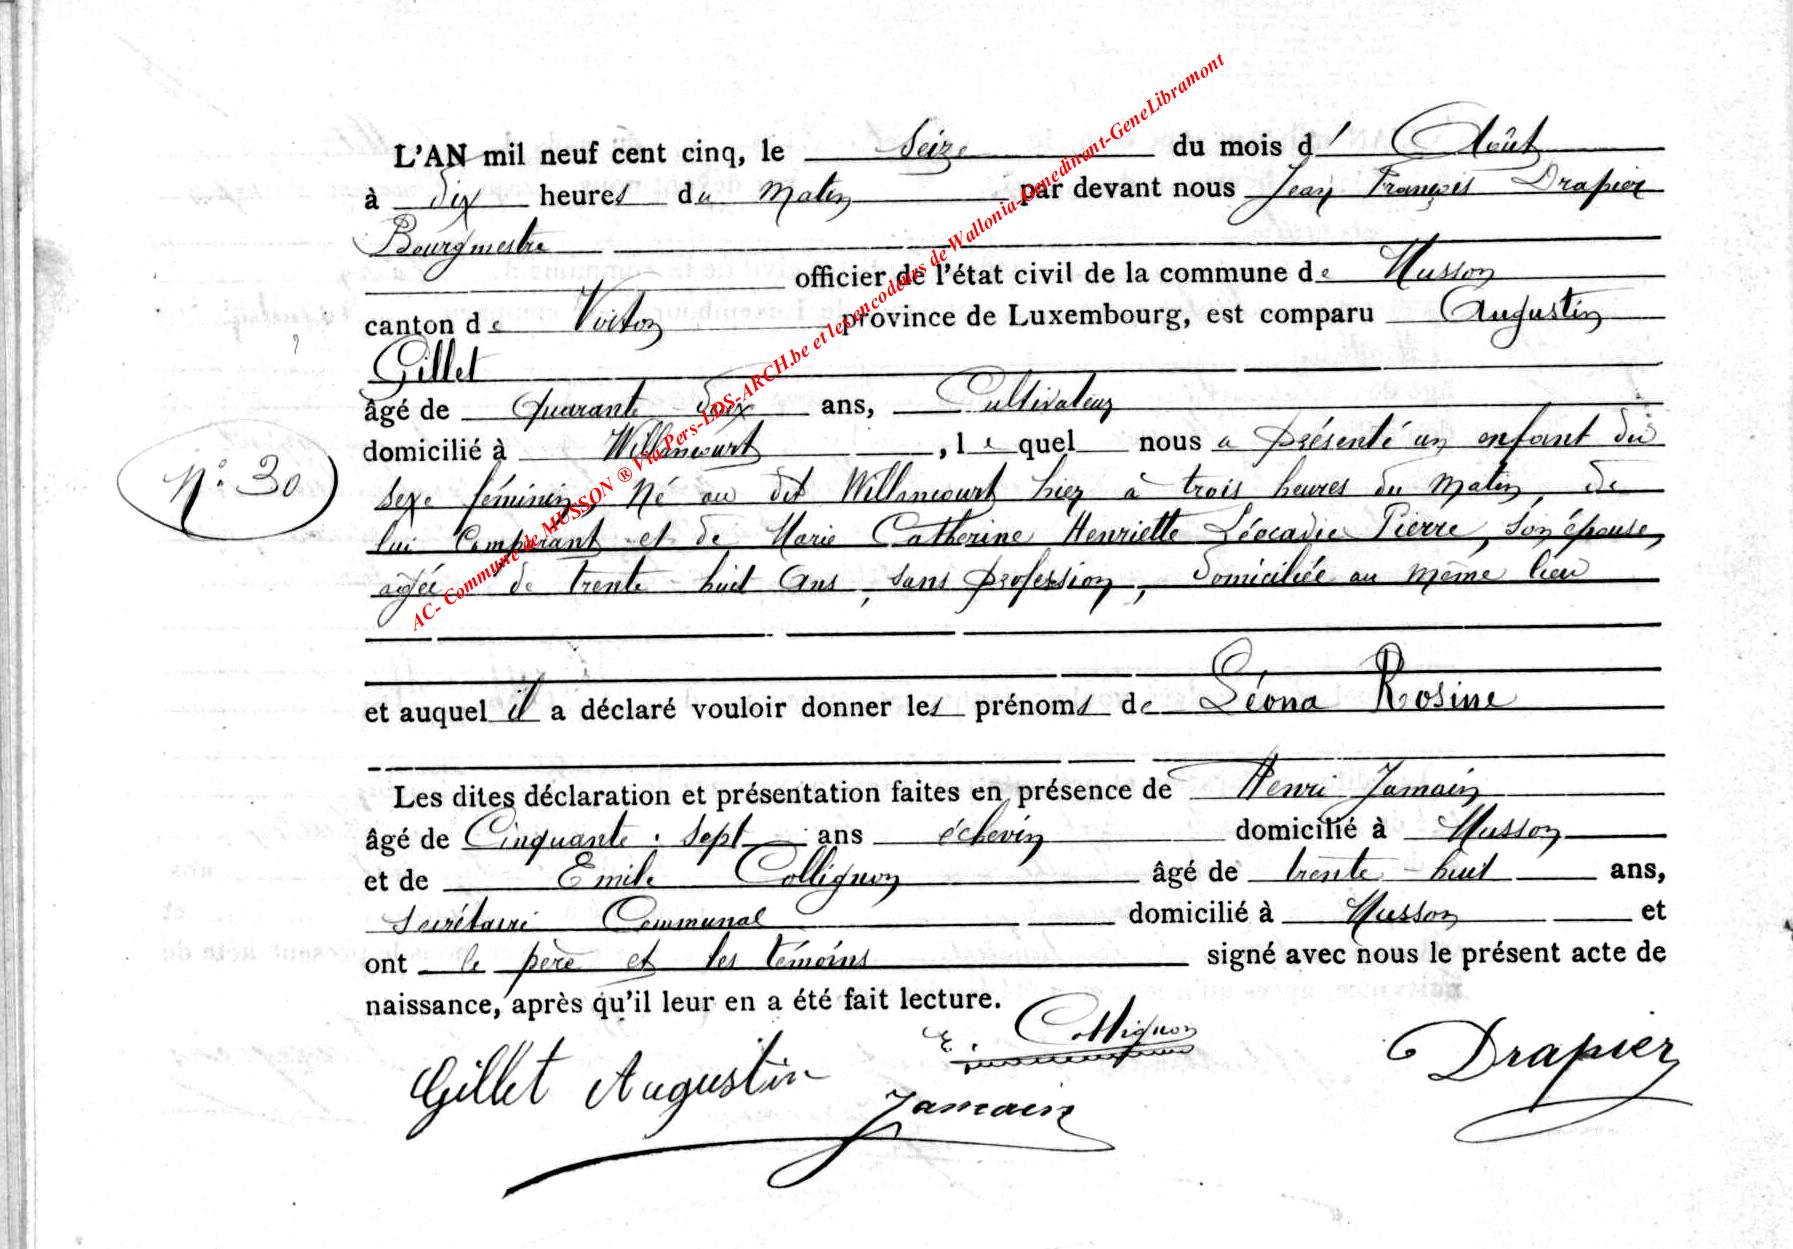 L'AN mil neuf cent cinq, le Seize du mois d' Août
à Dix heures du Matin par devant nous Jean François Drapier
Bourgmestre
officier de l'état civil de la commune de Musson
canton de Virton province de Luxembourg, est comparu Augustin
Gillet
âgé de Quarante ans, Cultivateur
domicilié à Willancourt, lequel nous a présenté un enfant du
N° 30
sexe féminin, Né au dit Willancourt hier à trois heures du Matin, de
lui Comparant et de Marie Catherine Henriette Léocadie Pierre, son épouse,
agée de trente-huit ans, sans profession, domiciliée au même lieu
et auquel il a déclaré vouloir donner les prénoms de Léona Rosine
Les dites déclaration et présentation faites en présence de Henri Jamain
âgé de Cinquante-sept ans échevin domicilié à Musson
et de Emile Collignon âgé de trente-huit ans,
Secrétaire Communal domicilié à Musson et
ont le père et les témoins signé avec nous le présent acte de
naissance, après qu'il leur en a été fait lecture.
E. Collignon
Gillet Augustin
Drapier
Jamain
AC- Commune de MUSSON ® Via Pers-LDS-ARCH.be et les encodeurs de Wallonia-Genedinant-GeneLibramont